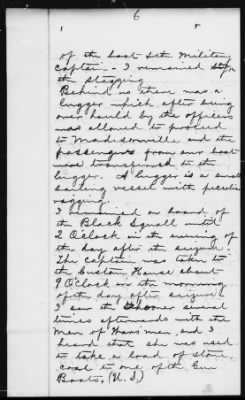 6
of the boat the Military
captain - I remained
the Stagging
Behind us there was a
lugger which after being
over hauled by the officers
was allowed to proceed
to Madisonville and the
passengers from our boat
were transferred to the
lugger. A lugger is a small
sailing vessel with peculiar
rigging.
I remained on board of
the Black Squall until
2 O'Clock in the evening of
the day after its seizure.
The captain was taken to
the Custom House about
9 O'Clock in the morning
of the day after seizure
I saw the several
times afterwards with the
Men of Wars men, and I
heard that she was used
to take a load of stone
coal to one of the Gun
Boats, (U. S.)